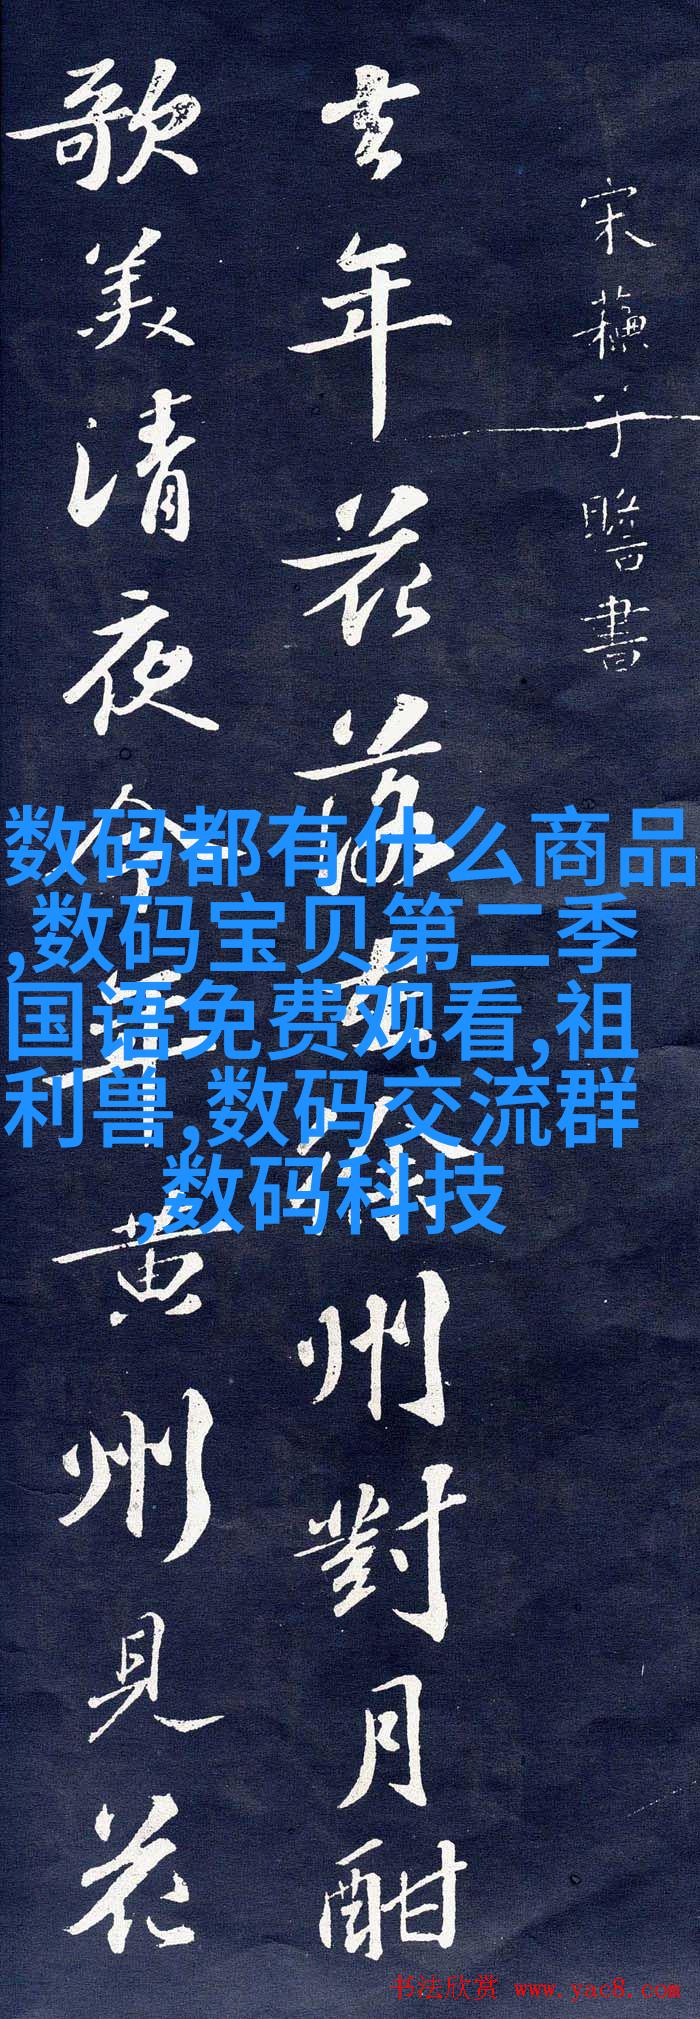 宋蘓子瞻書
去年花落在徐州對月酣
歌美清夜今年黄州見花
数码都有什么商品
,数码宝贝第二季
国语免费观看,祖
利兽,数码交流群
,数码科技
书法欣赏 www.yac8.com